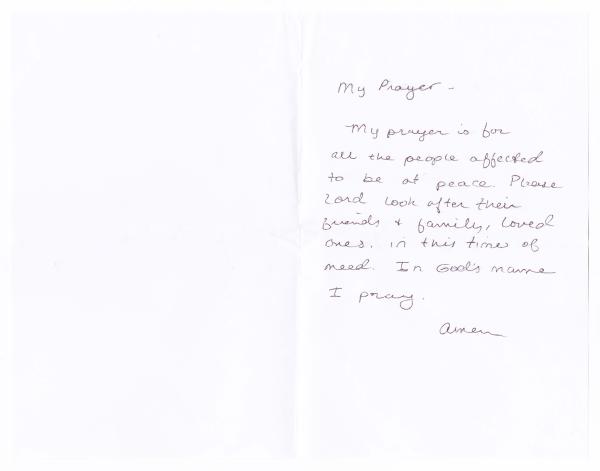 My Prayer -
My prayer is for
all the people affected
to be at peace. Please
Lord look after their
friends & family, loved
ones. in this time of
need. In God's name
I pray.
Amen